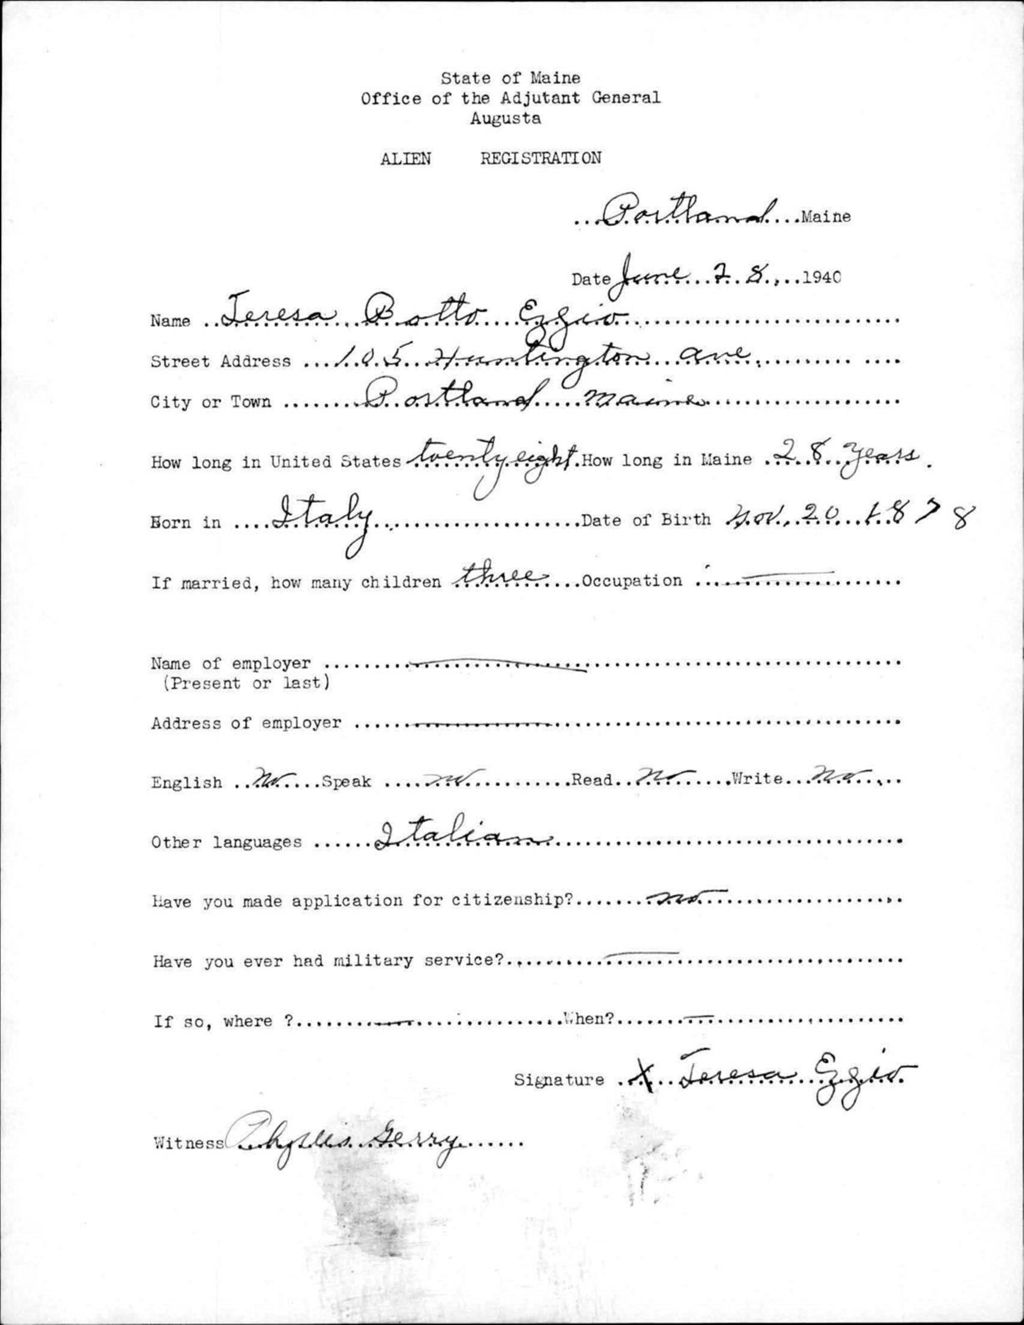 State of Maine
Office of the Adjutant General
Augusta
ALIEN REGISTRATION
...Portland....Maine
Date June 28, 1940
Name Teresa Botto Eggio
Street Address 105 Huntington ave.
City or Town Portland Maine
How long in United States twenty eight. How long in Maine 28 years.
Born in Italy Date of Birth Nov. 20 1878
If married, how many children three Occupation —
Name of employer —
(Present or last)
Address of employer —
English No Speak no Read No Write No
Other languages Italian
Have you made application for citizenship? no
Have you ever had military service? —
If so, where ? — When? —
Signature X Teresa Eggio
Witness Phyllis Gerry